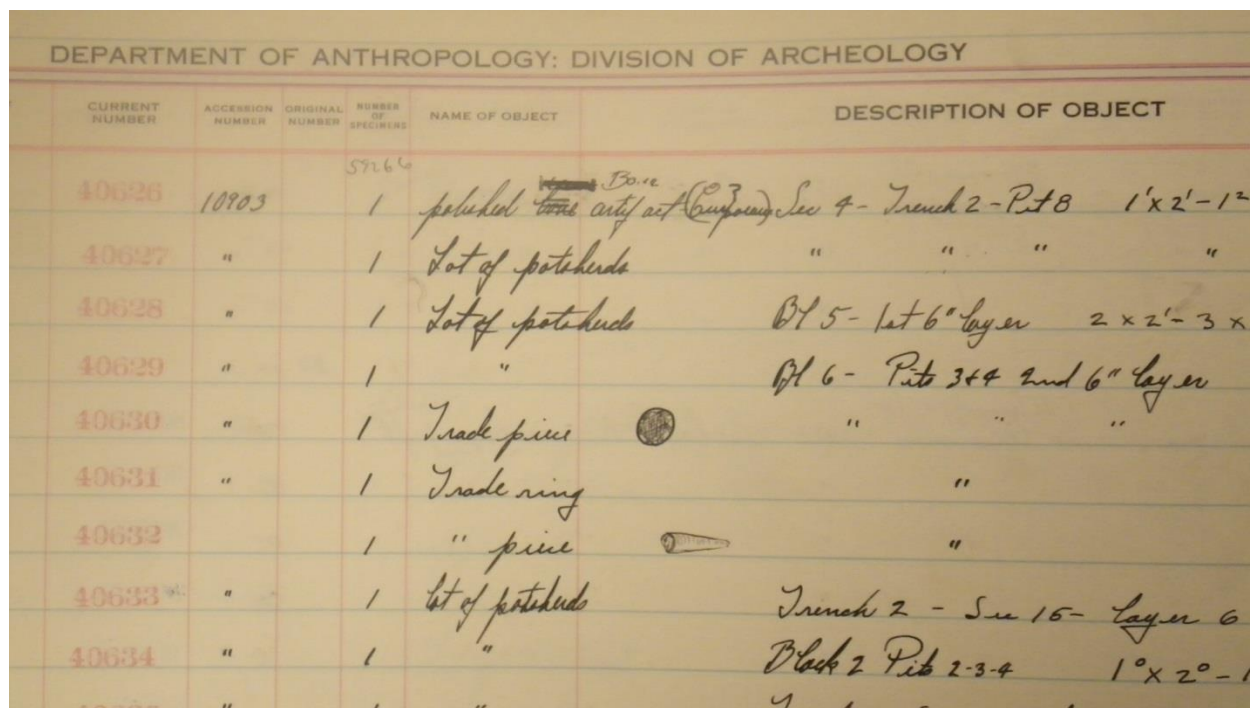 DEPARTMENT OF ANTHROPOLOGY: DIVISION OF ARCHEOLOGY
CURRENT NUMBER ACCESSION NUMBER ORIGINAL NUMBER NUMBER OF SPECIMENS NAME OF OBJECT DESCRIPTION OF OBJECT
59266
Bone
40626 10903 1 polished artifact (European) Sec 4 - Trench 2 - Pit 8 1' x 2' - 1²
40627 " 1 Lot of potsherds " " " "
40628 " 1 Lot of potsherds Bl 5 - 1st 6" layer 2 x 2' - 3 x
40629 " 1 " Bl 6 - Pits 3+4 2nd 6" layer
40630 " 1 Trade piece " " "
40631 " 1 Trade ring "
40632 1 " piece "
40633 " 1 lot of potsherds Trench 2 - Sec 15 - layer 6
40634 " 1 " Block 2 Pits 2-3-4 1° x 2° - 1